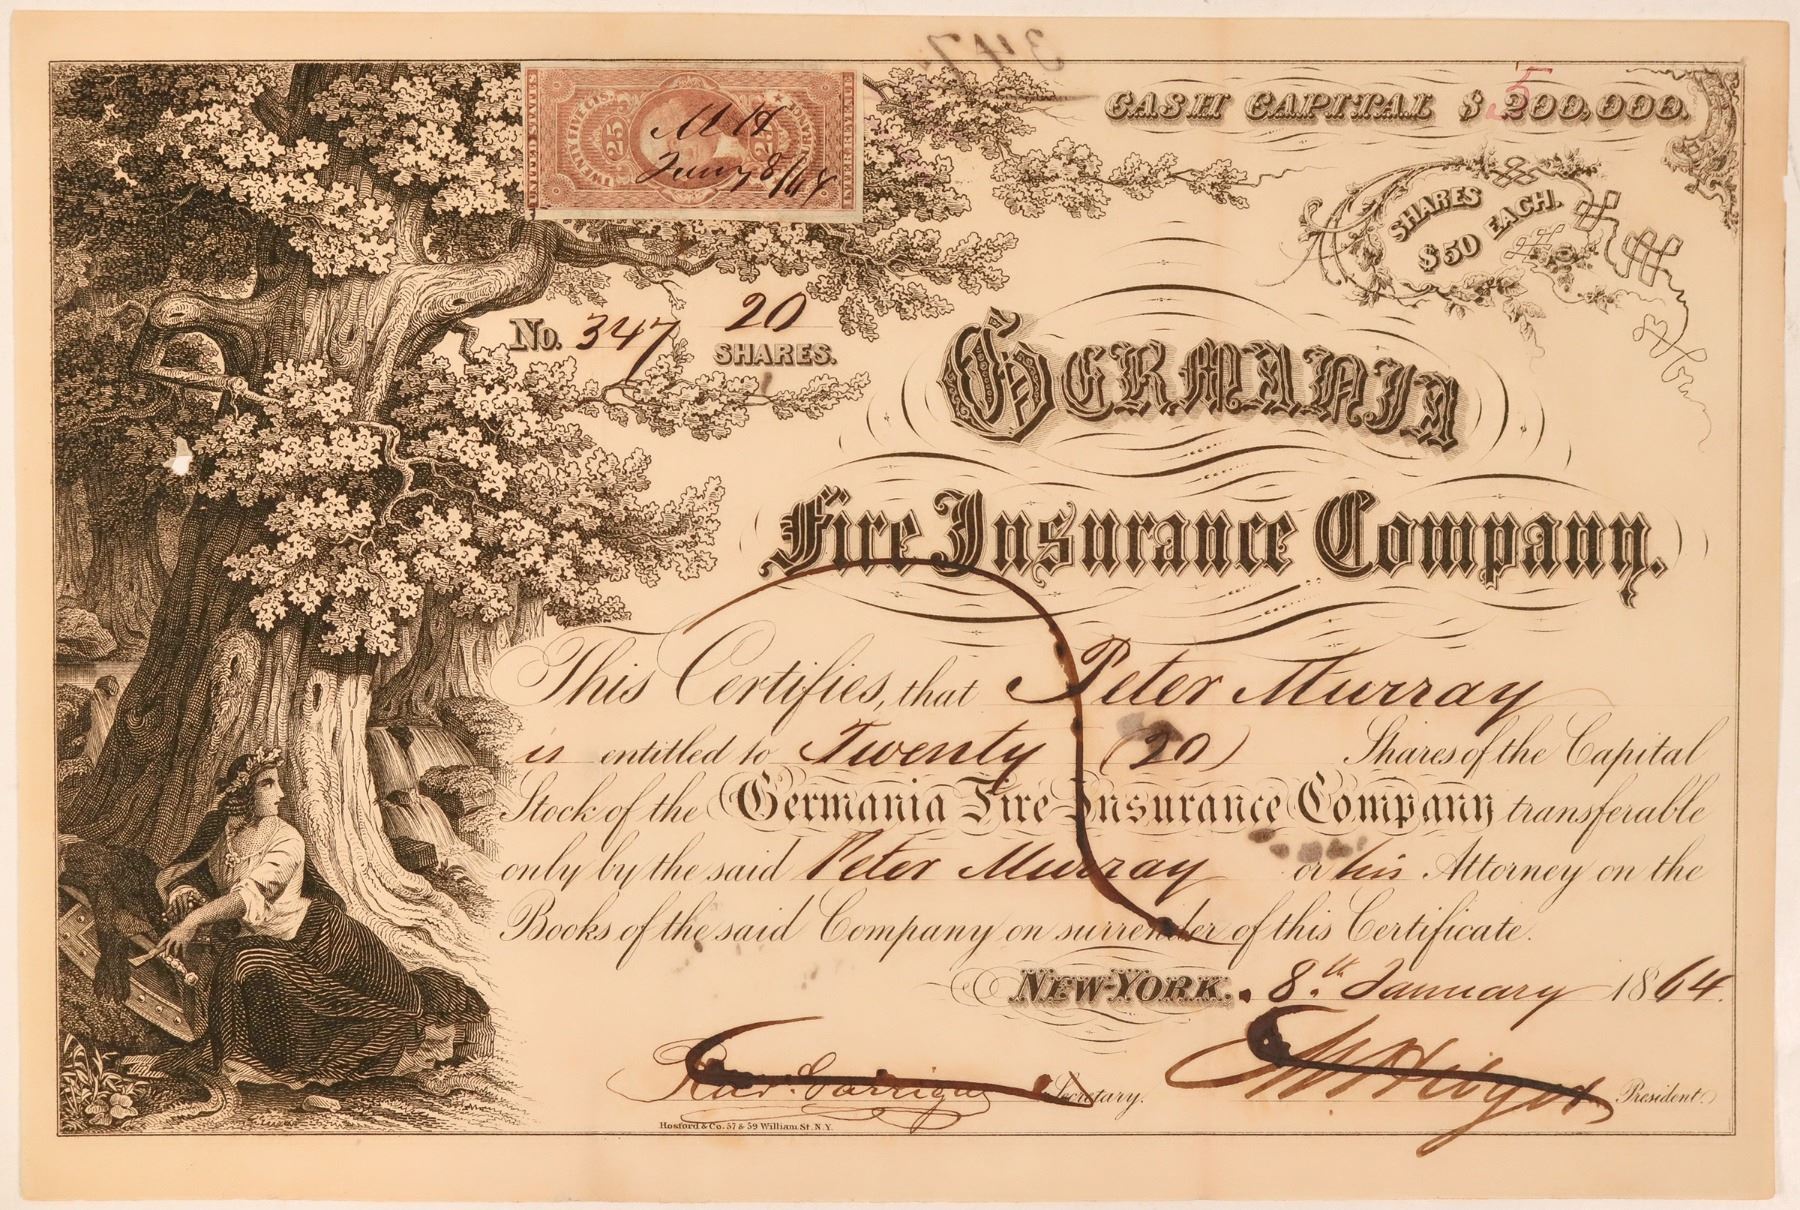 347
CASH CAPITAL $ 200,000.
5
UNITED STATES
TWENTY FIVE CTS.
25
25
INTER. REVENUE
M H
Jany 8/64
SHARES
$50 EACH.
No. 347
20
SHARES.
GERMANIA
Fire Insurance Company.
This Certifies, that Peter Murray
is entitled to Twenty (20) Shares of the Capital
Stock of the Germania Fire Insurance Company transferable
only by the said Peter Murray or his Attorney on the
Books of the said Company on surrender of this Certificate.
NEW-YORK. 8th January 1864.
Rud. Garrigue Secretary.
M Hilger President
Hosford & Co. 57 & 59 William St. N.Y.